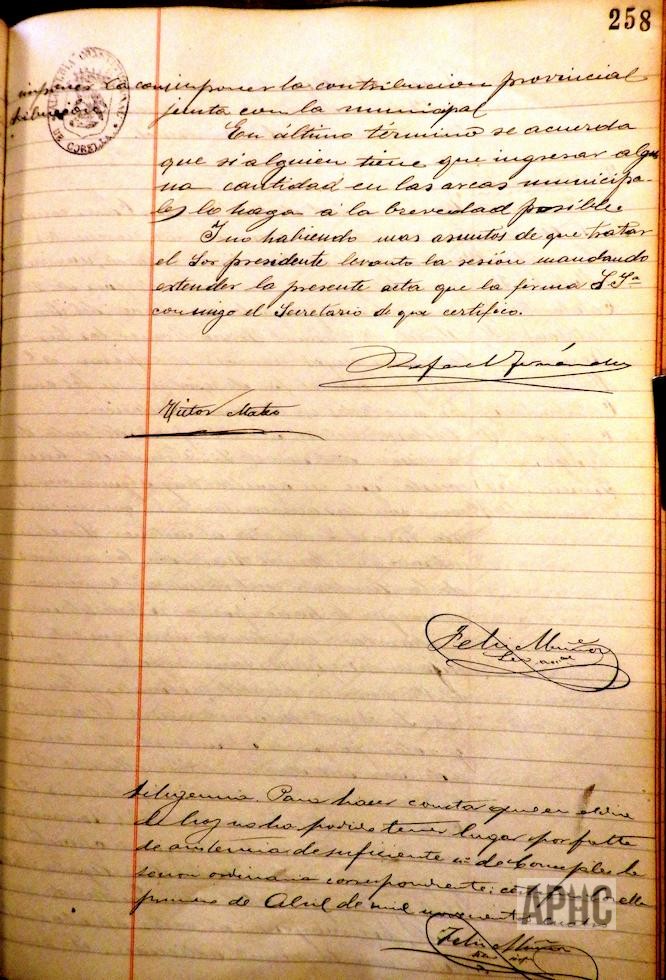 258
imponer la con
tribución
imponer la contribucion provincial
junta con la municipal
En último término se acuerda
que si alguien tiene que ingresar algu
na cantidad en las arcas municipa-
les lo haga á la brevedad posible.
I no habiendo mas asuntos de que tratar
el Sor presidente levanto la sesión mandando
extender la presente acta que la firma S. Sa
con migo el Secretario de que certifico.
Rafael Fernández
Victor Mateo
Felix Muñoz
Diligencia. Para hacer constar que en el dia
de hoy no ha podido tener lugar por falta
de asistencia de suficiente no de Concejales la
sesion ordinaria correspondiente;
primero de Abril de mil novecientos
APHC
Felix Muñoz
DE CORELLA